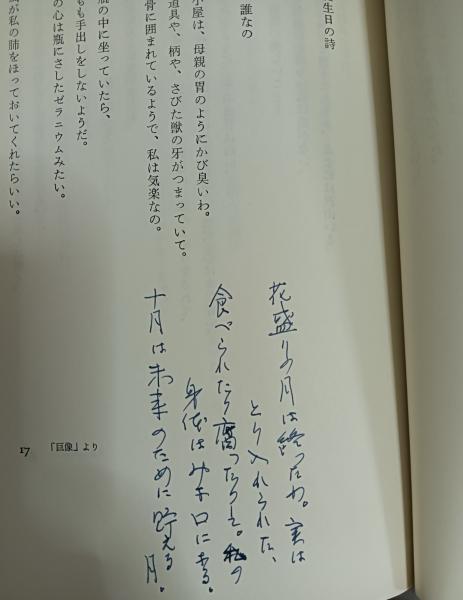 生日の詩
誰なの
小屋は、母親の胃のようにかび臭いわ。
道具や、柄や、さびた獣の牙がつまっていて。
骨に囲まれているようで、私は気楽なの。
の中に坐っていたら、
も手出しをしないようだ。
の心は瓶にさしたゼラニウムみたい。
が私の肺をほっておいてくれたらいい。
花盛りの月は終ったわ。実は
とり入れられた、
食べられたり腐ったりして。私の
身体はみな口にある。
十月は未来のために貯える
月。
17 「巨像」より